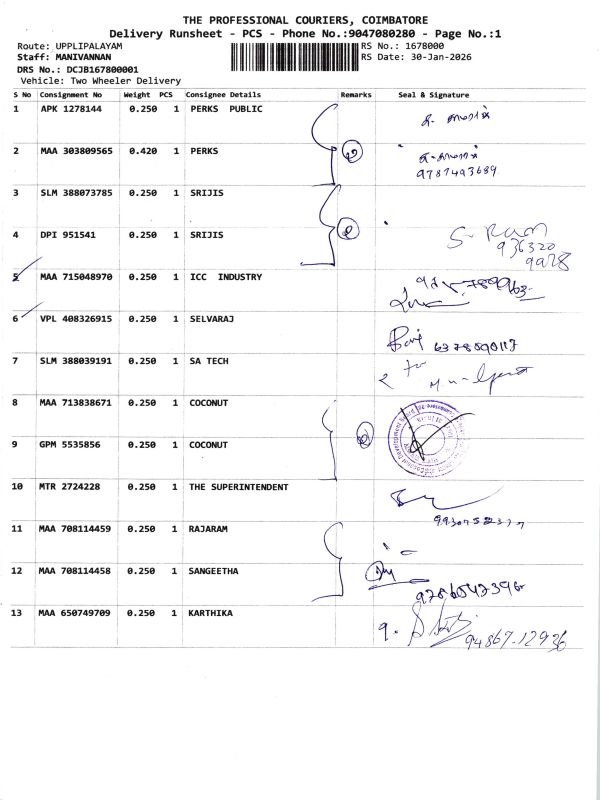 THE PROFESSIONAL COURIERS, COIMBATORE
Delivery Runsheet - PCS - Phone No.:9047080280 - Page No.:1
Route: UPPLIPALAYAM RS No.: 1678000
Staff: MANIVANNAN RS Date: 30-Jan-2026
DRS No.: DCJB167800001
Vehicle: Two Wheeler Delivery
S No Consignment No Weight PCS Consignee Details Remarks Seal & Signature
1 APK 1278144 0.250 1 PERKS PUBLIC
2 MAA 303809565 0.420 1 PERKS 2
9787493689
3 SLM 388073785 0.250 1 SRIJIS
4 DPI 951541 0.250 1 SRIJIS 2 S. Ram
936320
9928
5 MAA 715048970 0.250 1 ICC INDUSTRY
6 VPL 408326915 0.250 1 SELVARAJ
7 SLM 388039191 0.250 1 SA TECH
8 MAA 713838671 0.250 1 COCONUT
9 GPM 5535856 0.250 1 COCONUT 2
10 MTR 2724228 0.250 1 THE SUPERINTENDENT
11 MAA 708114459 0.250 1 RAJARAM
12 MAA 708114458 0.250 1 SANGEETHA
13 MAA 650749709 0.250 1 KARTHIKA
94867-12936